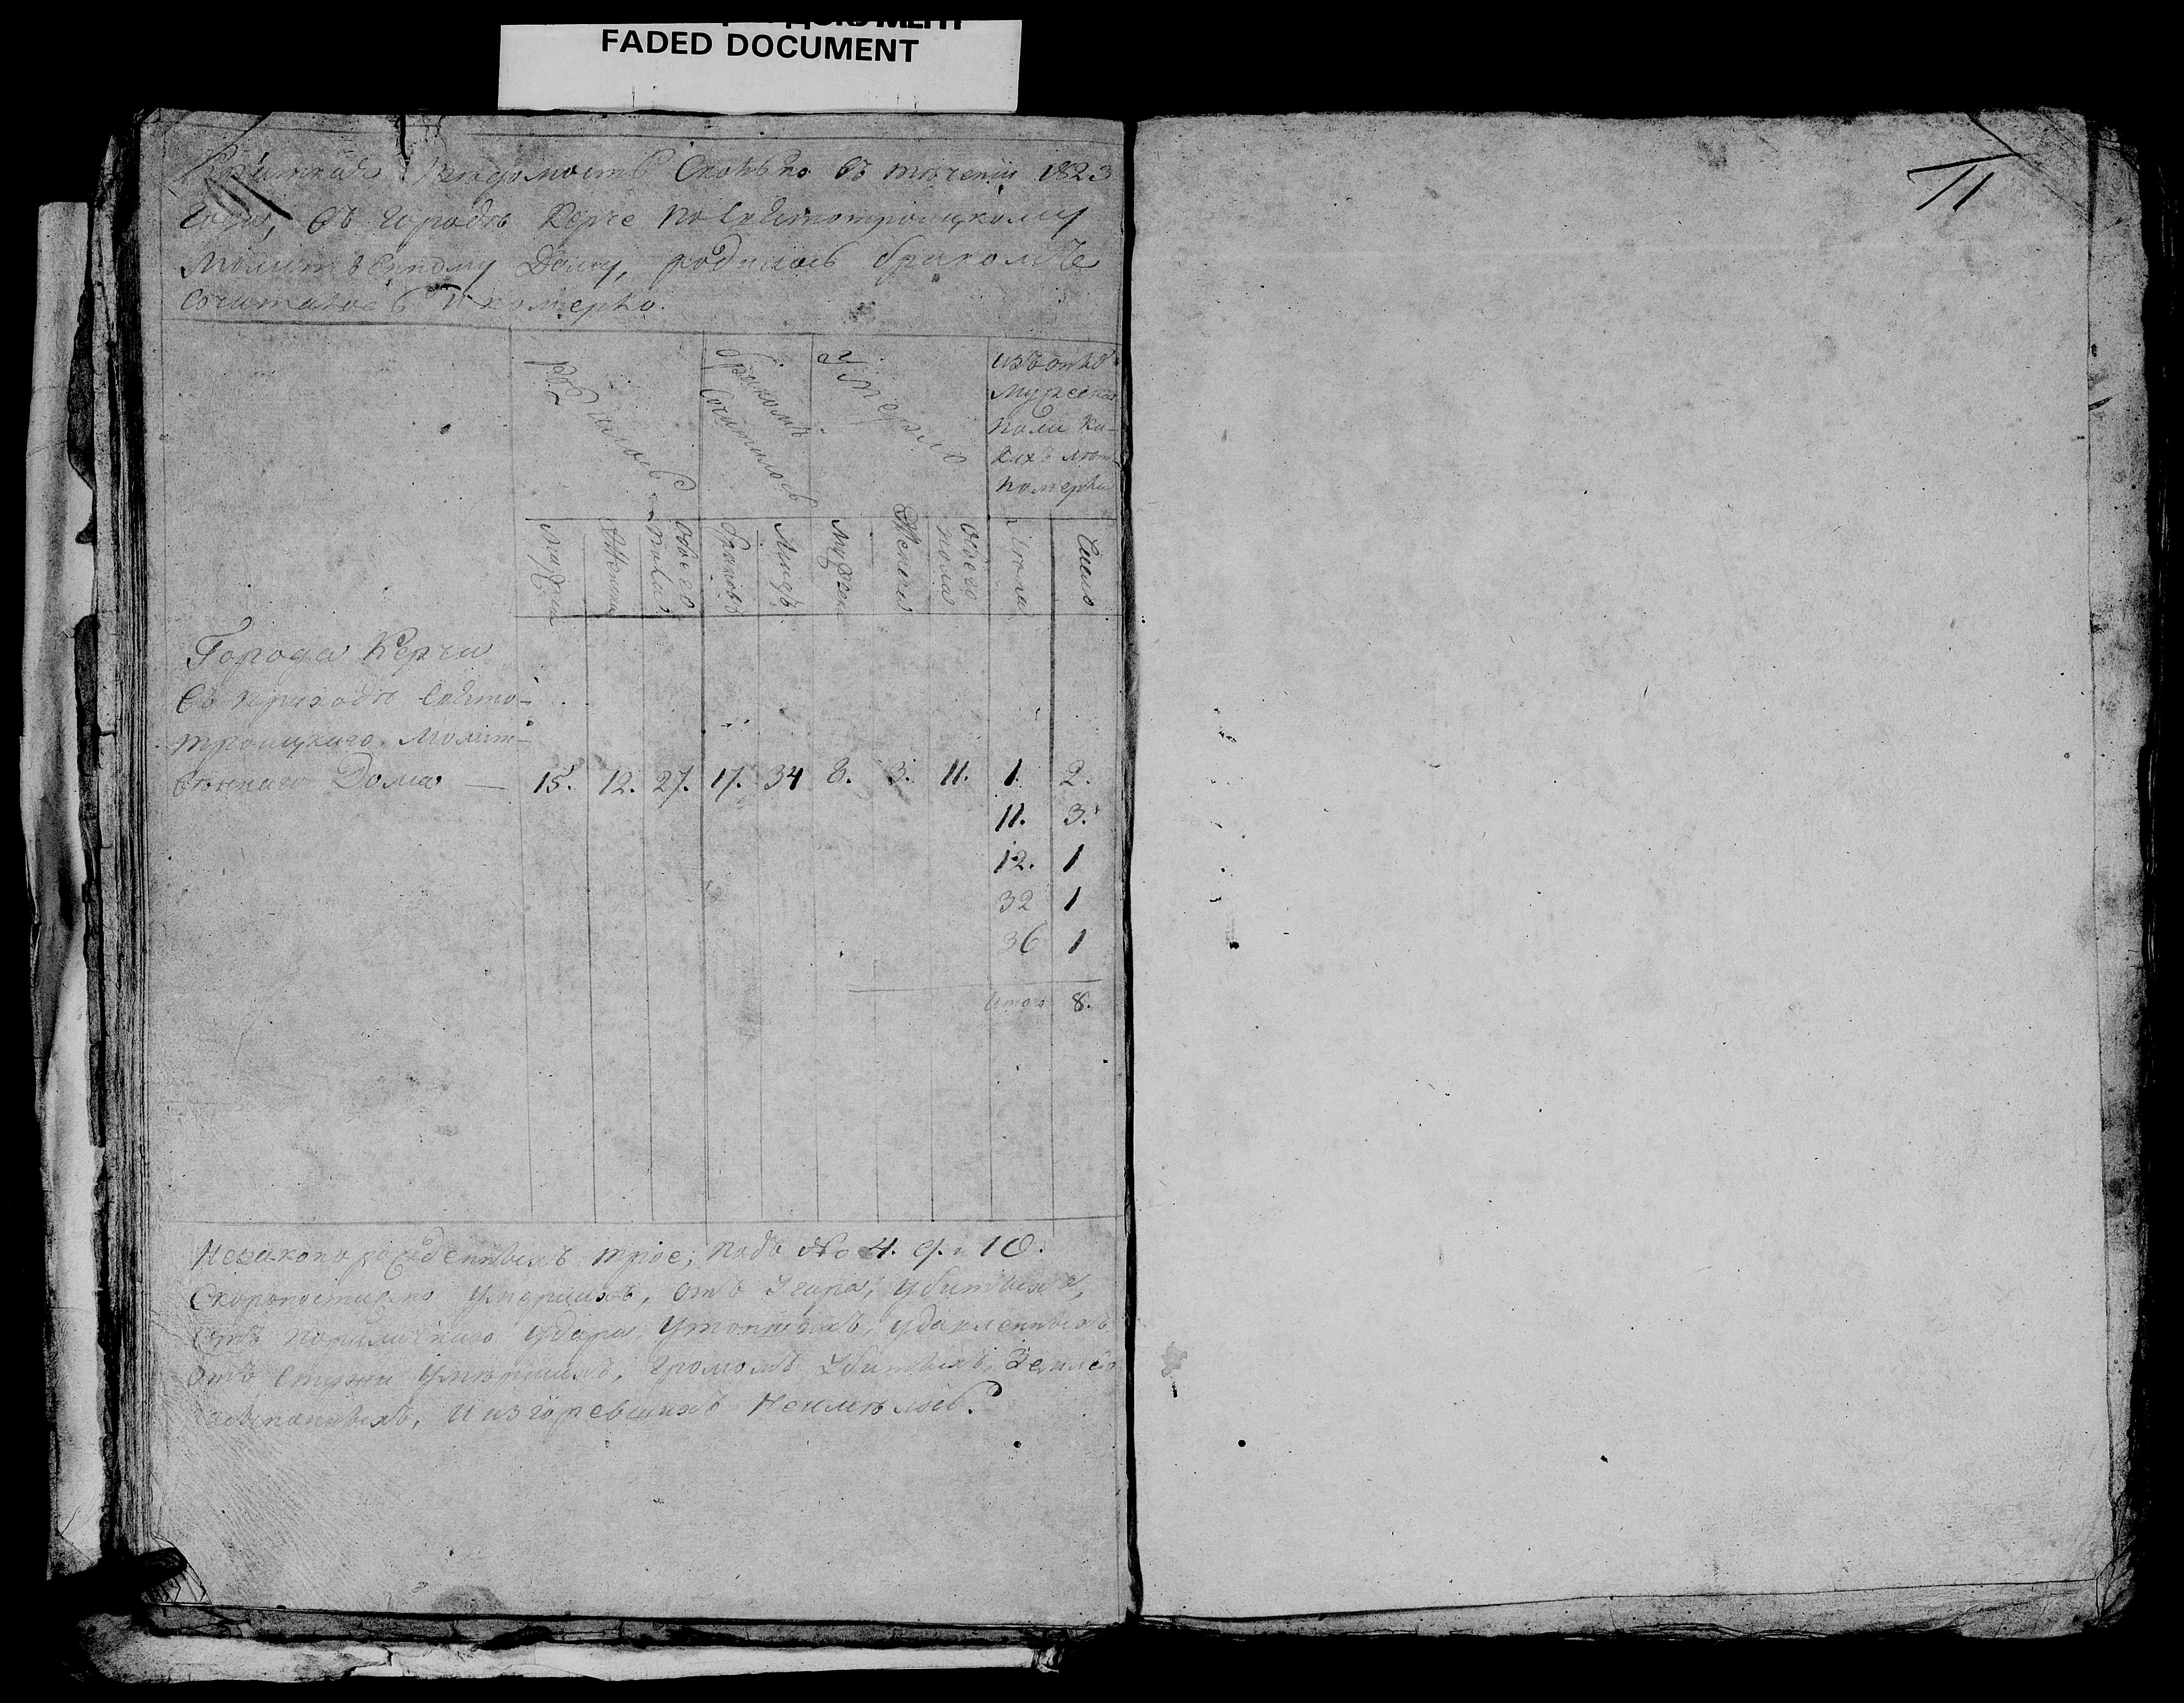 FADED DOCUMENT
11
Краткая Ведомость Сколько въ теченіи 1823
года, въ городѣ Керче по Святотроицкому
Молитвенному Дому, родилось бракомъ
Сочиталось и померло.
Родилось
бракомъ
Сочиталось
Умерло
изъ онаго
Мужеска
пола ка-
кихъ лѣтъ
померли
Мужеска
Женска
Обоего
пола
браковъ
Лицъ
Мужеска
Женска
Обоего
пола
Лѣта
Число
Города Керчи
въ приходѣ Свято-
троицкаго Молит-
веннаго Дома — 15. 12. 27. 17. 34 8. 3. 11. 1. 2.
11. 3.
12. 1
32 1
36 1
Итого 8.
Незаконорожденныхъ трое, подъ № 4. 9. и 10.
Скоропостижно Умершихъ, отъ Угара, Убитыхъ,
отъ паралическаго удара, Утопшихъ, удавленныхъ
отъ Стужи Умершихъ, громомъ Убитыхъ, Землею
засыпанныхъ, и изгоревшихъ Неимѣлось.